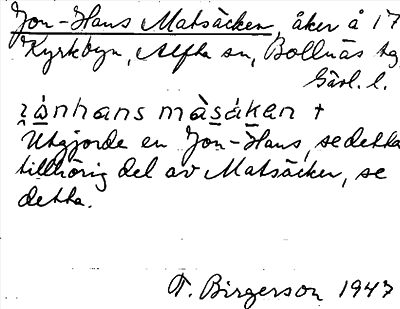 Jon-Hans Matsäcken, åker å 17
Kyrkbyn, Alfta sn, Bollnäs tg
Gävl. l.
Utgjorde en Jon-Hans, se detta
tillhörig del av Matsäcken, se
detta.
T. Birgerson 1947